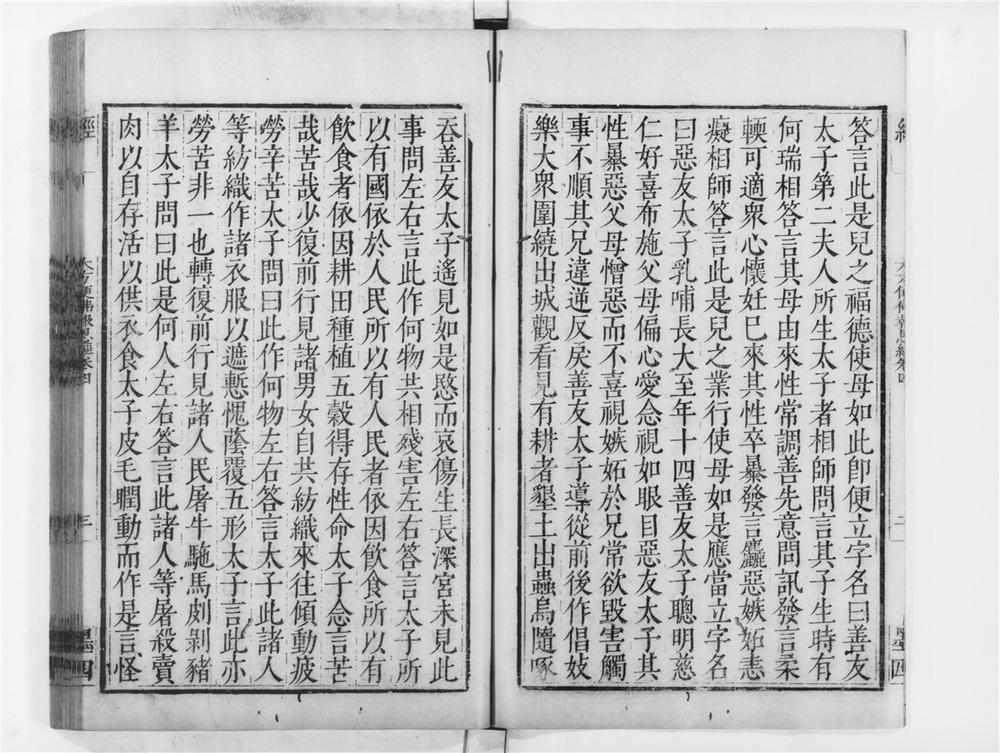 答言此是兒之福德使母如此卽便立字名曰善友
太子第二夫人所生太子者相師問言其子生時有
何瑞相答言其母由來性常調善先意問訊發言柔
輭可適衆心懷妊已來其性卒暴發言麤惡嫉妬恚
癡相師答言此是兒之業行使母如是應當立字名
曰惡友太子乳哺長大至年十四善友太子聰明慈
仁好喜布施父母偏心愛念視如眼目惡友太子其
性暴惡父母憎惡而不喜視嫉妬於兄常欲毀害觸
事不順其兄違逆反戾善友太子導從前後作倡妓
樂大衆圍繞出城觀看見有耕者墾土出蟲烏隨啄
吞善友太子遙見如是愍而哀傷生長深宮未見此
事問左右言此作何物共相殘害左右答言太子所
以有國依於人民所以有人民者依因飮食所以有
飮食者依因耕田種植五穀得存性命太子念言苦
哉苦哉少復前行見諸男女自共紡織來往傾動疲
勞辛苦太子問曰此作何物左右答言太子此諸人
等紡織作諸衣服以遮慙愧蔭覆五形太子言此亦
勞苦非一也轉復前行見諸人民屠牛駞馬剝剝豬
羊太子問曰此是何人左右答言此諸人等屠殺賣
肉以自存活以供衣食太子皮毛瞤動而作是言怪
經
三
墨四